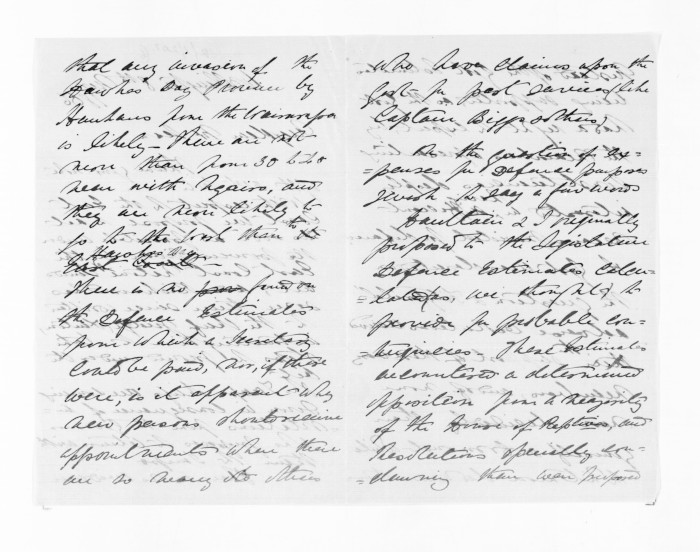 that any invasion of the
Hawkes Bay Province by
Hauhaus from the
is likely – There are not
more than from 30 to 40
men with Ngairo, and
they are more likely to
go to the South than to
Hawkes Bay
East Coast
There is no fund on
the Defence Estimates
from which a Secretary
could be paid, nor, if there
were, is it apparent why
new persons should receive
appointments where there
are so many others
who have claims upon the
Govt for past services (like
Captain Biggs & others)
On the question of Ex-
=penses for Defence purposes
I wish to say a few words
Haultain & I originally
proposed to the Legislature
Defence Estimates, calcu-
=lated, as we thought, to
provide for probable con-
=tingencies. These Estimates
encountered a determined
opposition from a majority
of the House of Reptives, and
Resolutions specially con-
=demning them were proposed